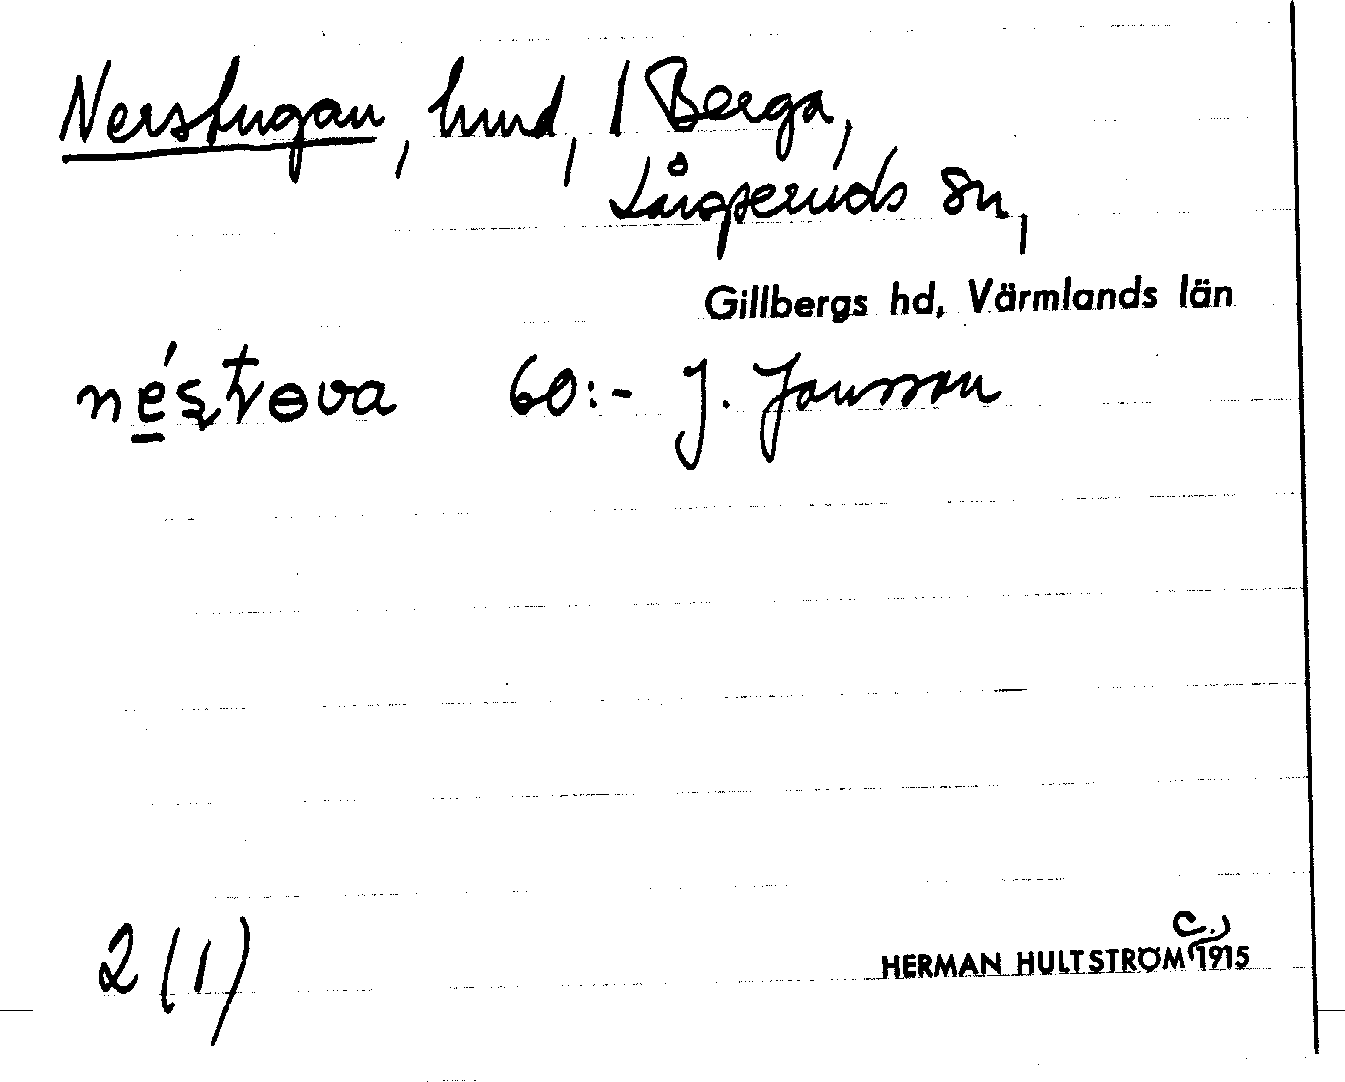 Nerstugan, hmd, 1 Berga,
Långseruds sn,
Gillbergs hd, Värmlands län
néstɵva 60:- J. Jansson
2 (1)
HERMAN HULTSTRÖM c. 1915